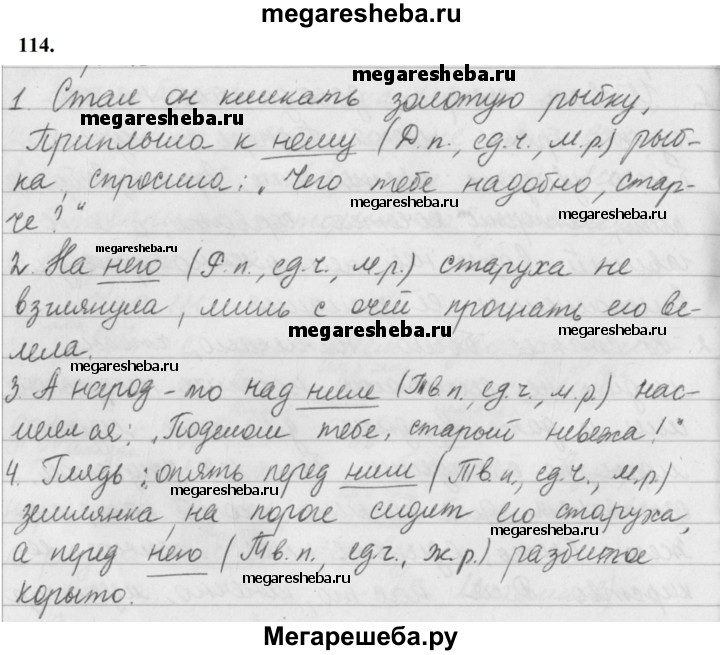 megaresheba.ru
114.
megaresheba.ru
1. Стал он кликать золотую рыбку,
megaresheba.ru
Приплыла к нему (Д.п., ед.ч., м.р.) рыб-
ка, спросила: „Чего тебе надобно, стар-
megaresheba.ru
megaresheba.ru
че?“
megaresheba.ru
2. На него (Р.п., ед.ч., м.р.) старуха не
взглянула, лишь с очей прогнать его ве-
megaresheba.ru
megaresheba.ru
лела.
megaresheba.ru
3. А народ-то над ним (Тв.п., ед.ч., м.р.) нас-
меялся: „Поделом тебе, старый невежа!“
4. Глядь: опять перед ним (Тв.п., ед.ч., м.р.)
megaresheba.ru
землянка, на пороге сидит его старуха,
megaresheba.ru
а перед него (Тв.п., ед.ч., ж.р.) разбитое
megaresheba.ru
корыто.
Мегарешеба.ру